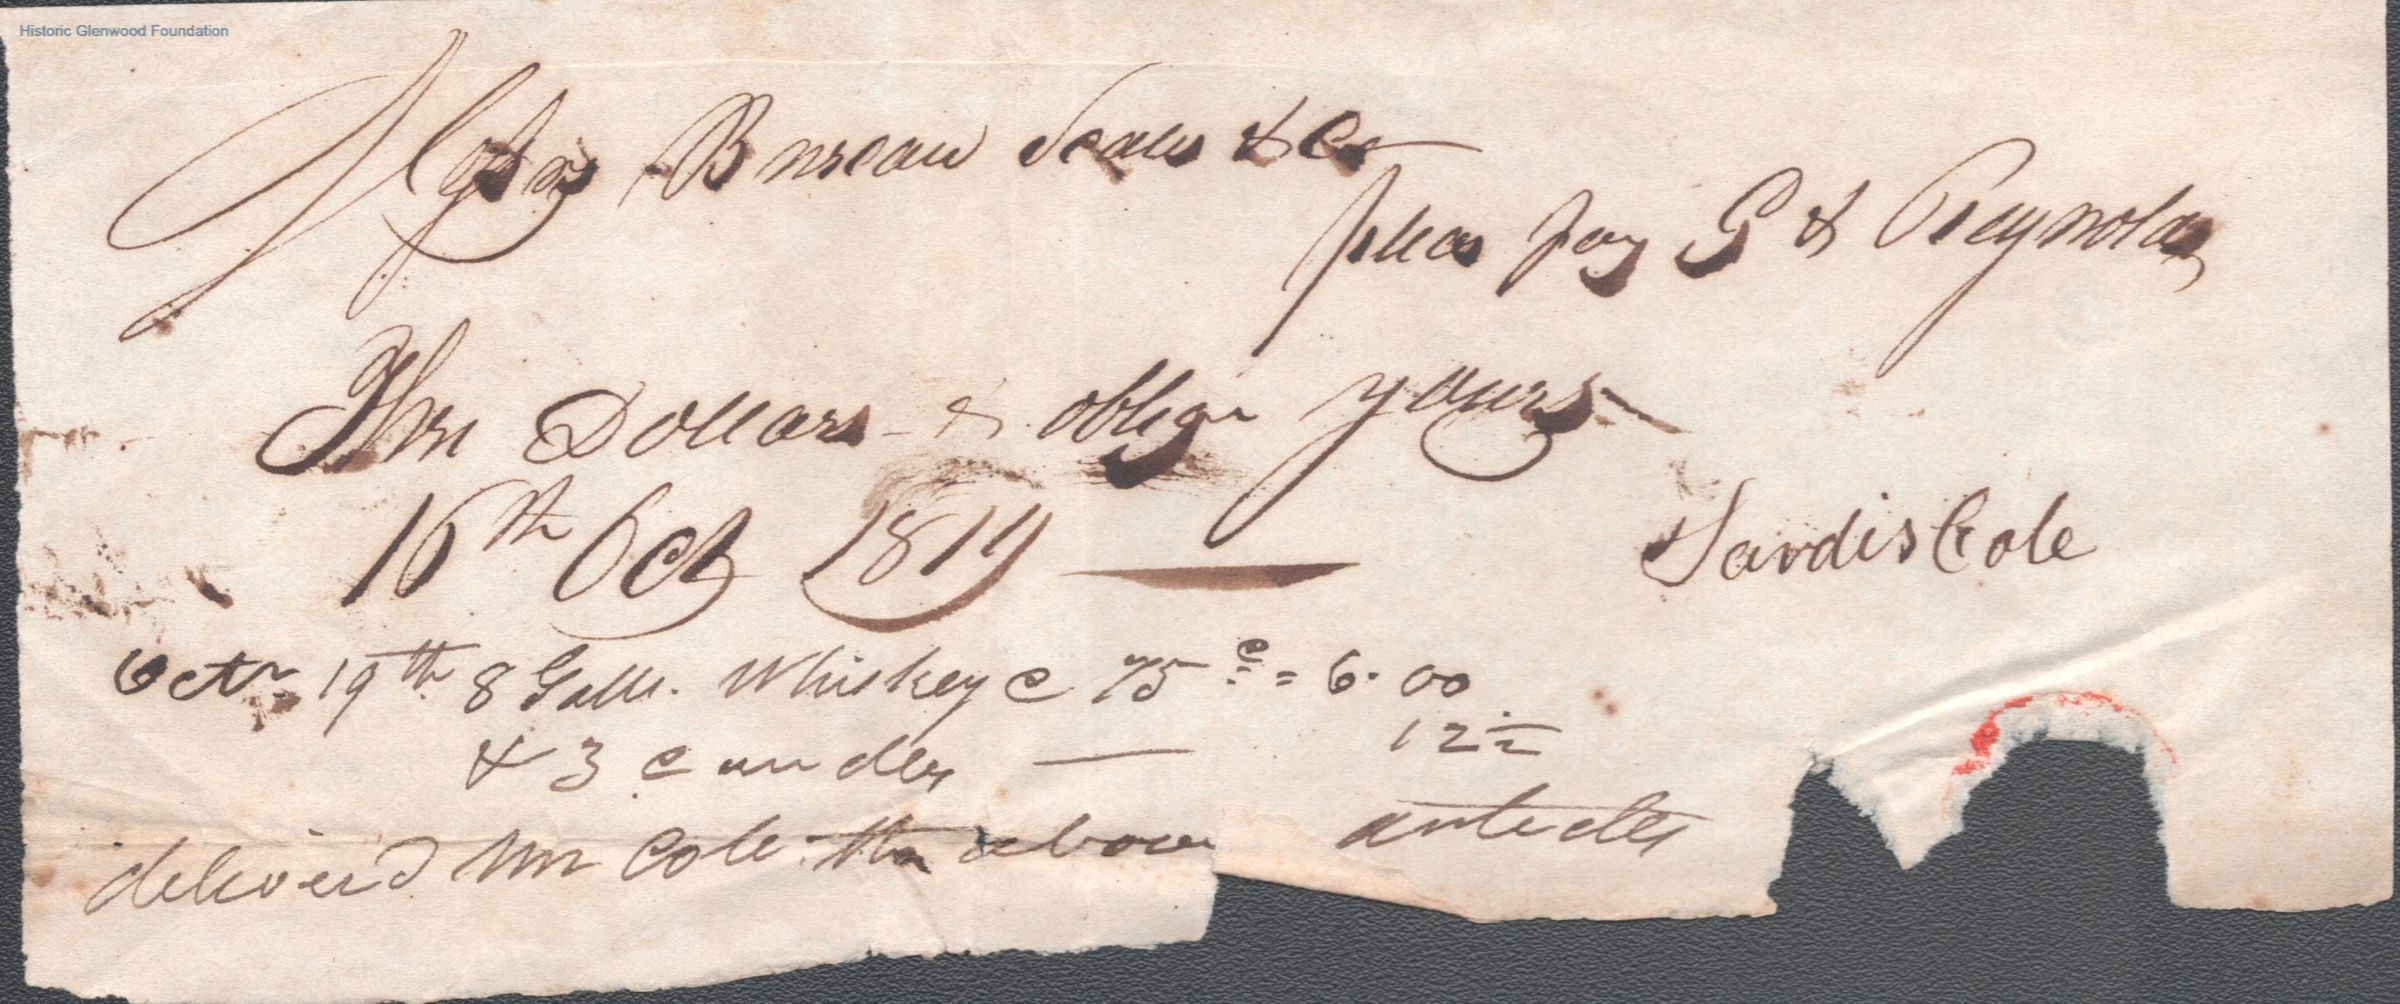 Historic Glenwood Foundation
Bureau Scales & Co
pleas pay G & Reynolds
Three Dollars & oblige yours
16th Oct 1819
Sardis Cole
Octr 19th 8 Galls. Whiskey @ 75 c = 6.00
& 3 candles — 12½
deliverd Mr Cole the above articles